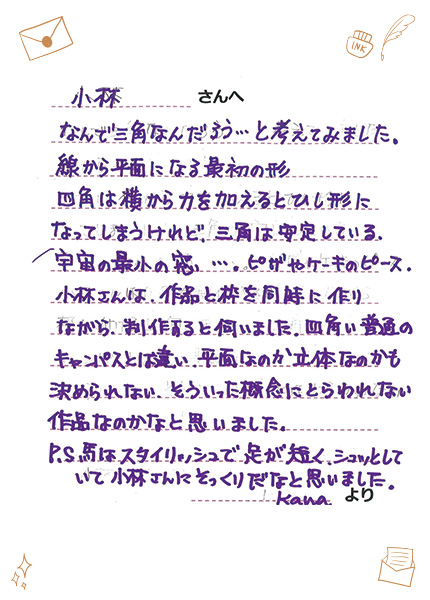 INK
小林 さんへ
なんで三角なんだろう…と考えてみました。
線から平面になる最初の形
四角は横から力を加えるとひし形に
なってしまうけれど、三角は安定している。
宇宙の最小の窓 …。ピザやケーキのピース。
小林さんは、作品と枠を同時に作り
ながら、制作すると伺いました。四角い普通の
キャンバスとは違い、平面なのか立体なのかも
決められない、そういった概念にとらわれない
作品なのかなと思いました。
P.S.馬はスタイリッシュで足が短く、シュッとして
いて小林さんにそっくりだなと思いました。
Kana より